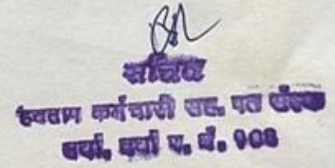 सचिव
हवताम कर्मचारी सह. पत संस्था
वर्धा, वर्धा प. नं. 908